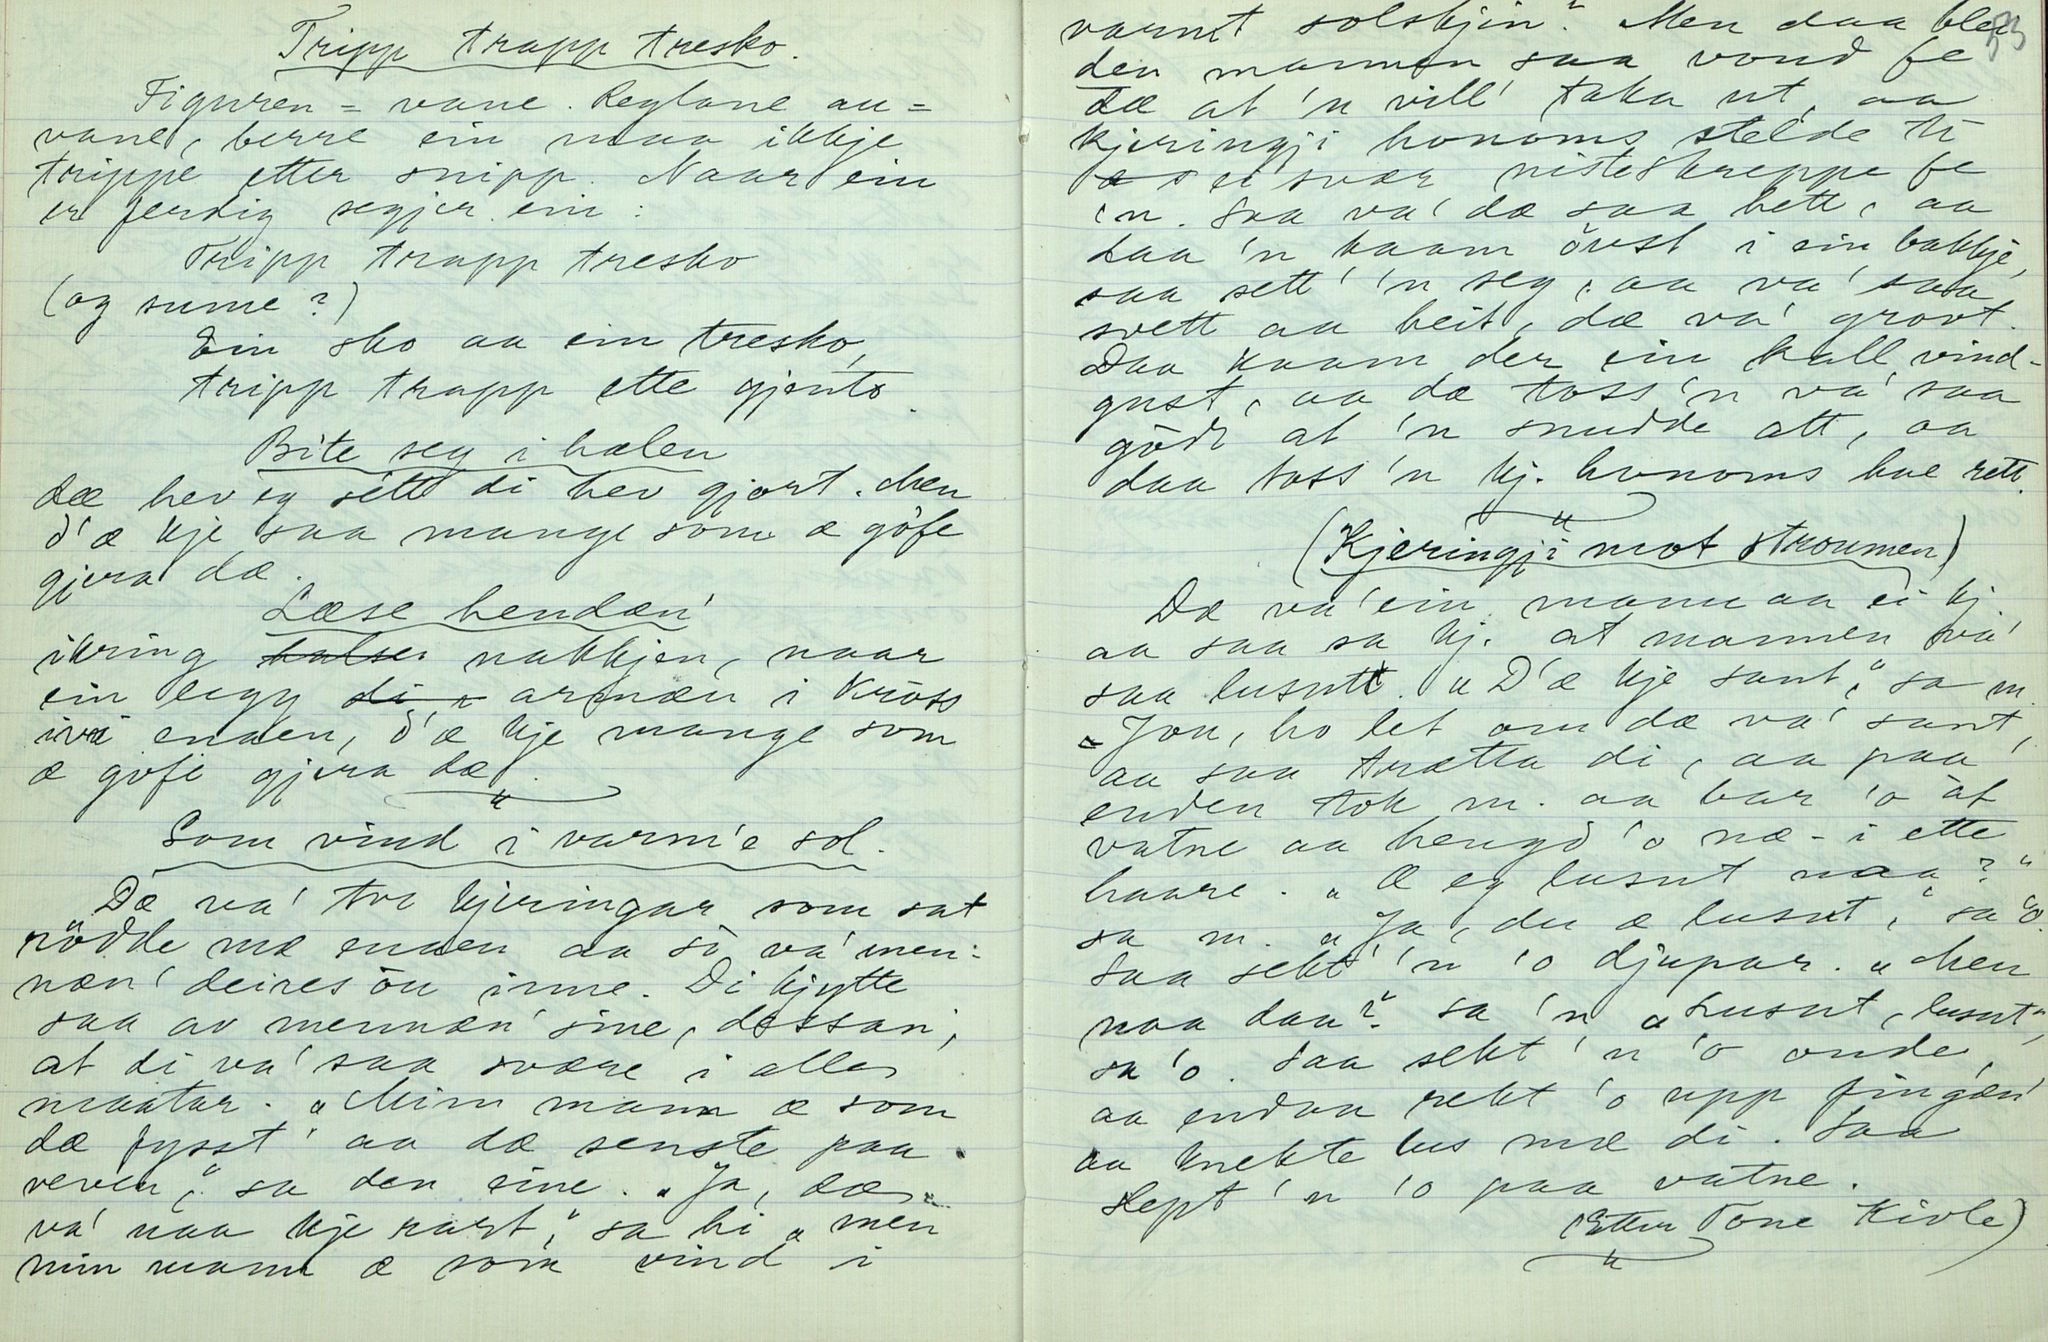 Tripp trapp tresko.
Figuren = vane. Reglane au =
vane, berre ein maa ikkje
trippe etter snipp. Naar ein
er ferdig segjer ein:
Tripp trapp tresko
(og sume?)
Ein sko aa ein tresko,
tripp trapp ette gjento.
Bite seg i hælen
Dæ hev eg sett di hev gjort. Men
d'æ kje saa mange som æ göfe
gjera dæ.
Læse hendæn'
ikring halsen nakkjen, naar
ein legg di armæn i kross
ivi enaen, d'æ kje mange som
æ gofe gjera dæ.
Som vind i varm'e sol.
Dæ va' tvo kjeringar som sat
rödde mæ enaen aa so va' men-
næn' deires öu inne. Di kjytte
saa av mennæn' sine, dessan',
at di va' saa svære i alle
maatar. „Min mann æ som
dæ fysst' aa dæ senste paa
veven," sa den eine. „Ja, dæ
va' naa kje rart," sa hi „men
min mann æ som vind i
53
varmt solskjin". Men daa blei
den mannen saa vond fe
dæ at 'n vill' taka ut, aa
kjeringji honoms stelde ti
ei svær nisteskreppe fe
'n. Saa va' dæ saa hett, aa
daa 'n kaam övst i ein bakkje,
saa sett' 'n seg, aa va' saa
svett aa heit, dæ va' grovt.
Daa kaam der ein kall vind-
gust, aa dæ toss 'n va' saa
gödt at 'n snudde att, aa
daa toss 'n kj. honoms hae rett.
(Kjeringji mot stroumen)
Dæ va' ein mann aa ei kj.
aa saa sa kj. at mannen va'
saa lusutt. „D'æ kje sant," sa m.
„Jou, ho let om dæ va' sant,
aa saa trætta di, aa paa
enden tok m. aa bar 'o åt
vatne aa hengd' 'o næ-i ette
haare. „Æ eg lusut naa?"
sa m. „Ja, du æ lusut," sa 'o.
Saa sekt' 'n 'o djupar. „Men
naa daa?" sa 'n „Lusut, lusut"
sa 'o. Saa sekt' 'n 'o onde,
aa endaa rekt 'o upp fingæn'
aa knekte lus mæ di. Saa
slept' 'n 'o paa vatne.
(Etter Tone Kivle)